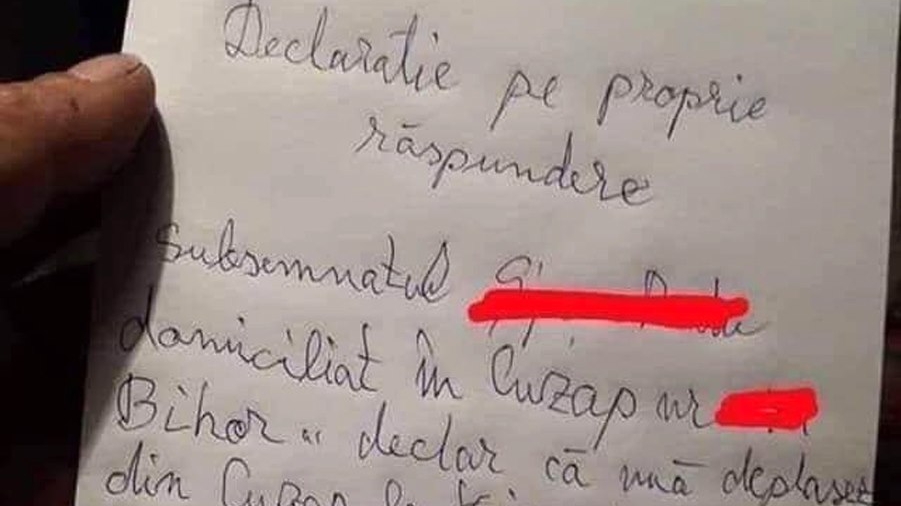 Declaratie pe proprie
răspundere
subsemnatul
domiciliat în Cuzap nr
Bihor" declar că mă deplasez
din Cuzap